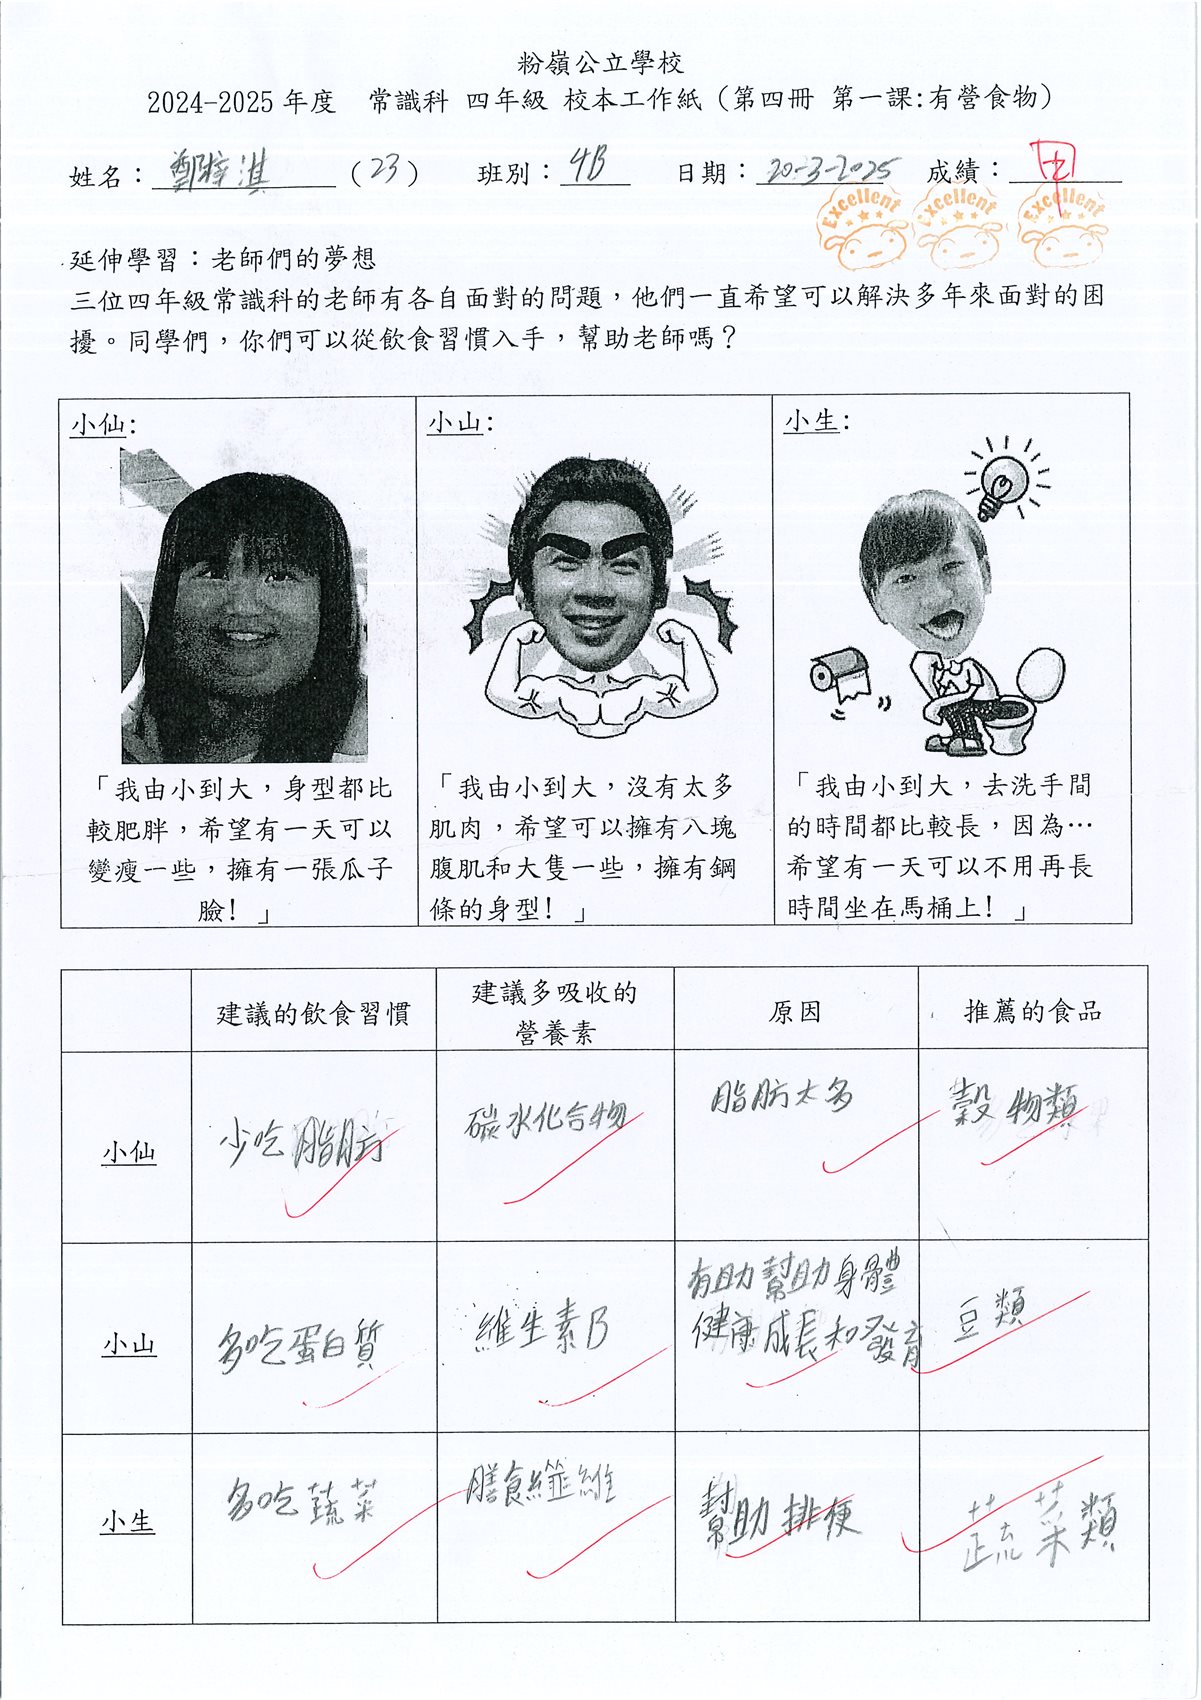 粉嶺公立學校
2024-2025年度 常識科 四年級 校本工作紙（第四冊 第一課:有營食物）
姓名：鄭梓淇（23） 班別：4B 日期：20-3-2025 成績：甲
Excellent Excellent Excellent
延伸學習：老師們的夢想
三位四年級常識科的老師有各自面對的問題，他們一直希望可以解決多年來面對的困
擾。同學們，你們可以從飲食習慣入手，幫助老師嗎？
小仙:
「我由小到大，身型都比
較肥胖，希望有一天可以
變瘦一些，擁有一張瓜子
臉！」
小山:
「我由小到大，沒有太多
肌肉，希望可以擁有八塊
腹肌和大隻一些，擁有鋼
條的身型！」
小生:
「我由小到大，去洗手間
的時間都比較長，因為…
希望有一天可以不用再長
時間坐在馬桶上！」
建議的飲食習慣
建議多吸收的
營養素
原因
推薦的食品
小仙
少吃脂肪
碳水化合物
脂肪太多
穀物類
小山
多吃蛋白質
維生素B
有助幫助身體
健康成長和發育
豆類
小生
多吃蔬菜
膳食纖維
幫助排便
蔬菜類